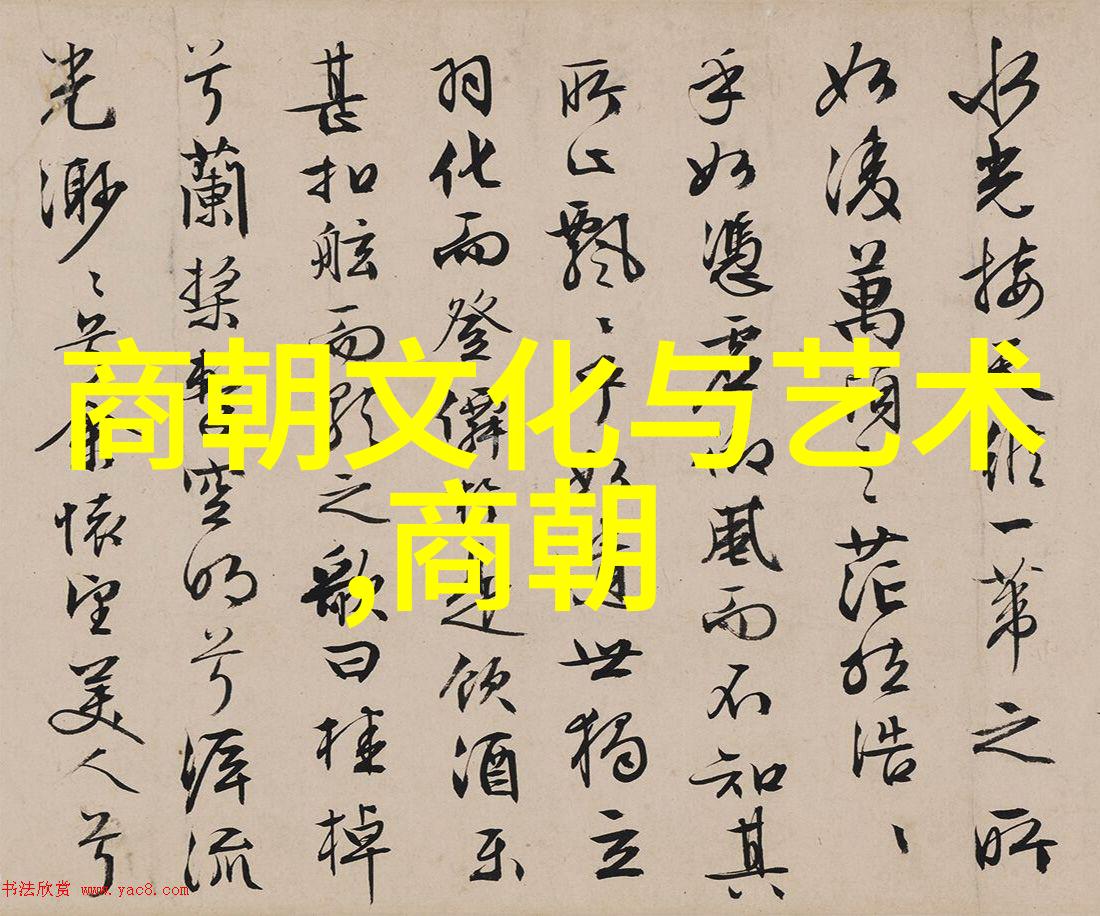 水光接天縱一葦之所
如凌萬頃之茫然浩〻
乎如憑虛御風而不知其
所止飄〻乎遺世獨立
羽化而登僊於是飲酒樂
甚扣舷而歌之歌曰桂棹
兮蘭槳擊空明兮泝流
光渺〻兮余懷望美人兮
商朝文化与艺术
,商朝
书法欣赏 www.yac8.com